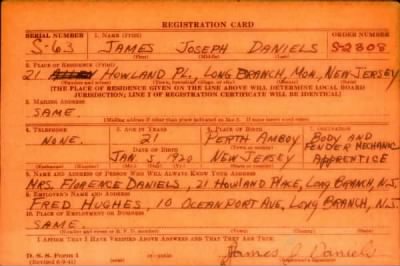 REGISTRATION CARD
SERIAL NUMBER 1. NAME (Print) ORDER NUMBER
S-63 JAMES JOSEPH DANIELS S-2308
(First) (Middle) (Last)
2. PLACE OF RESIDENCE (Print)
21 HOWLAND PL., LONG BRANCH, MON., NEW JERSEY
[THE PLACE OF RESIDENCE GIVEN ON THE LINE ABOVE WILL DETERMINE LOCAL BOARD
JURISDICTION; LINE 2 OF REGISTRATION CERTIFICATE WILL BE IDENTICAL]
3. MAILING ADDRESS
SAME.
[Mailing address if other than place indicated on line 2. If same insert word same]
4. TELEPHONE 5. AGE IN YEARS 6. PLACE OF BIRTH 7. OCCUPATION
NONE. 21 PERTH AMBOY BODY AND
DATE OF BIRTH (Town or county) FENDER MECHANIC
JAN. 5, 1920 NEW JERSEY APPRENTICE
(Exchange) (Number) (Mo.) (Day) (Yr.) (State or country)
8. NAME AND ADDRESS OF PERSON WHO WILL ALWAYS KNOW YOUR ADDRESS
MRS. FLORENCE DANIELS, 21 HOWLAND PLACE, LONG BRANCH, N.J.
9. EMPLOYER'S NAME AND ADDRESS
FRED HUGHES, 10 OCEANPORT AVE, LONG BRANCH, N.J.
10. PLACE OF EMPLOYMENT OR BUSINESS
SAME.
I AFFIRM THAT I HAVE VERIFIED ABOVE ANSWERS AND THAT THEY ARE TRUE.
D. S. S. Form 1
James J Daniels